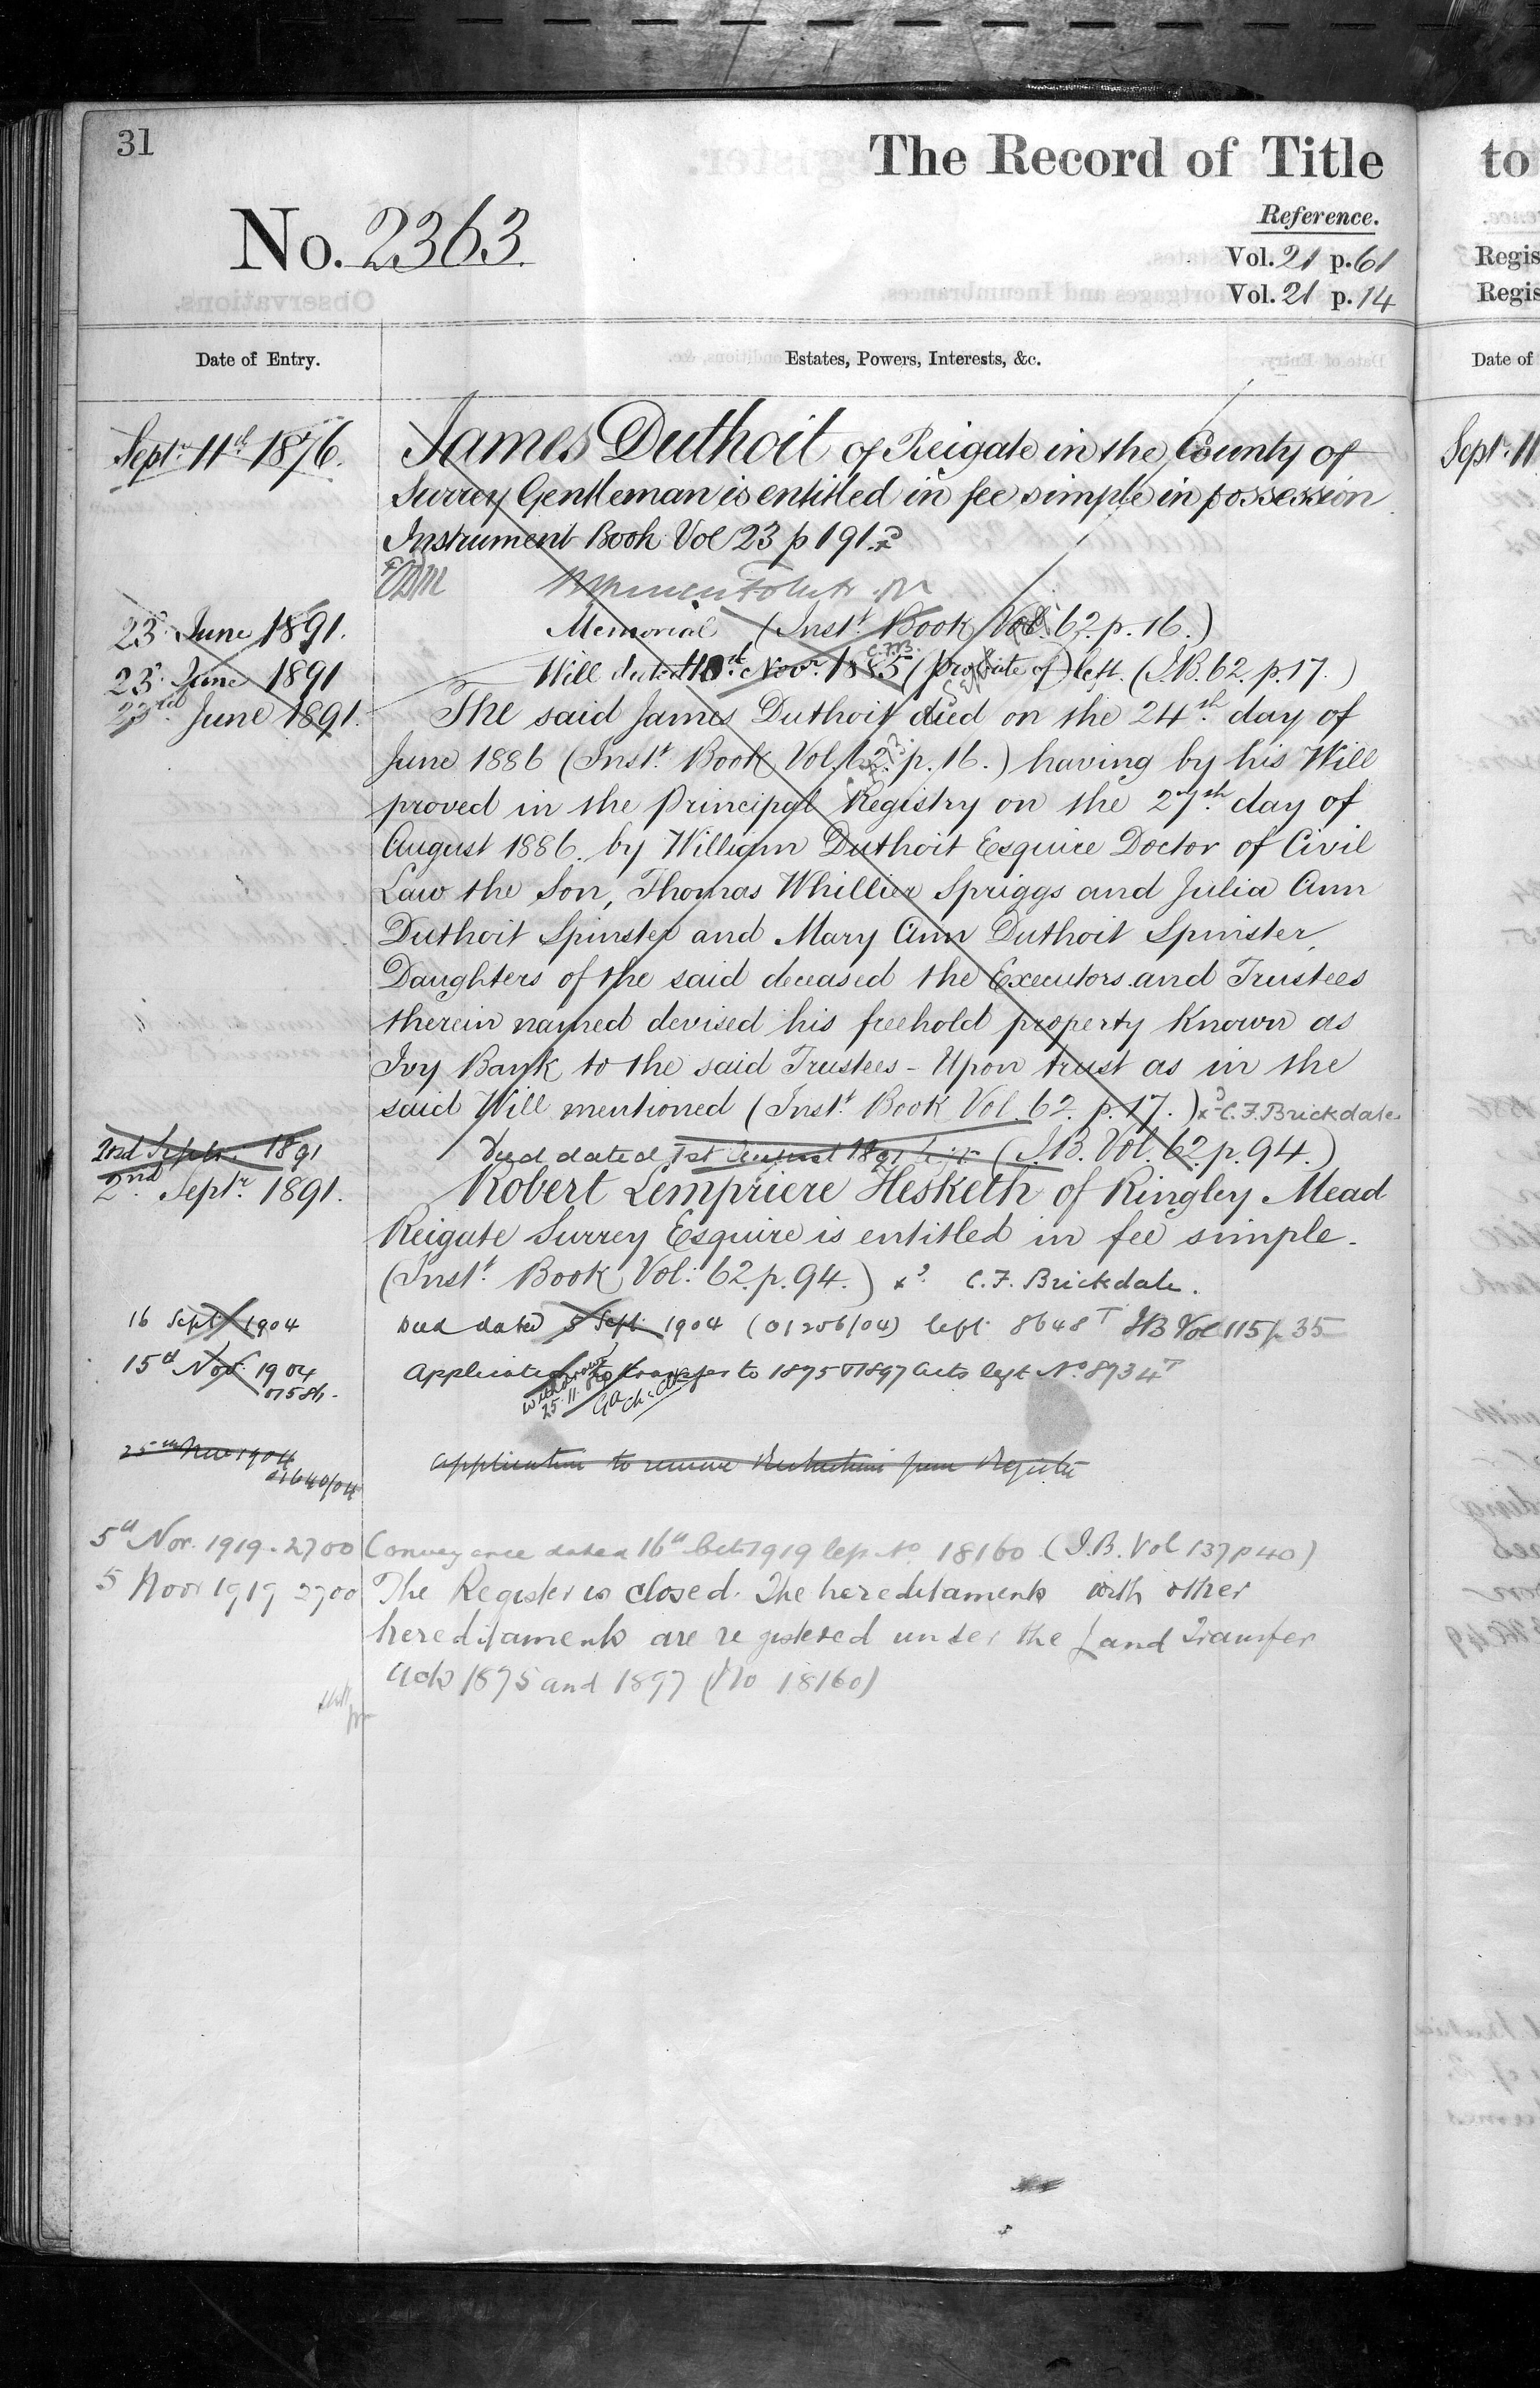 31
The Record of Title
to
Reference.
No. 2363
Vol. 21 p. 61
Vol. 21 p. 14
Regis
Regis
Date of Entry.
Estates, Powers, Interests, &c.
Date of
Septr. 11th 1876.
James Duthoit of Reigate in the County of
Sept. 11
Surrey Gentleman is entitled in fee simple in possession
Instrument Book Vol 23 p 191.
23. June 1891.
Memorial (Inst. Book Vol. 62. p. 16.)
23. June 1891
Will dated 10th Novr. 1885 (probate of) left. (I.B. 62. p. 17.)
23rd June 1891.
The said James Duthoit died on the 24th day of
June 1886 (Inst. Book Vol. 62. p. 16.) having by his Will
proved in the Principal Registry on the 27th day of
August 1886. by William Duthoit Esquire Doctor of Civil
Law the Son, Thomas Whillier Spriggs and Julia Ann
Duthoit Spinster and Mary Ann Duthoit Spinster,
Daughters of the said deceased the Executors and Trustees
therein named devised his freehold property known as
Ivy Bank to the said Trustees - Upon trust as in the
said Will mentioned (Inst. Book Vol. 62. p. 17.) C.F. Brickdale
2nd Septr. 1891
Deed dated 1st August 1891 left (I.B. Vol. 62. p. 94.)
2nd Septr. 1891.
Robert Lempriere Hesketh of Ringley Mead
Reigate Surrey Esquire is entitled in fee simple.
(Inst. Book Vol: 62. p. 94.) C.F. Brickdale.
16 Sept. 1904
Deed dated 5 Sept. 1904 (01206/04) left 8648T IB Vol 115 p. 35
15th Nov. 1904
Application to transfer to 1875 & 1897 Acts left No. 8934T
01586.
Withdrawn
25.11.04
25th Nov 1904
Application to remove Restrictions from Register
01640/04
5th Nov. 1919. 2700
Conveyance dated 16th Oct 1919 left No 18160 (I.B. Vol 137 p 40)
5 Nov 1919 2700
The Register is closed. The hereditaments with other
hereditaments are registered under the Land Transfer
Acts 1875 and 1897 (No 18160)